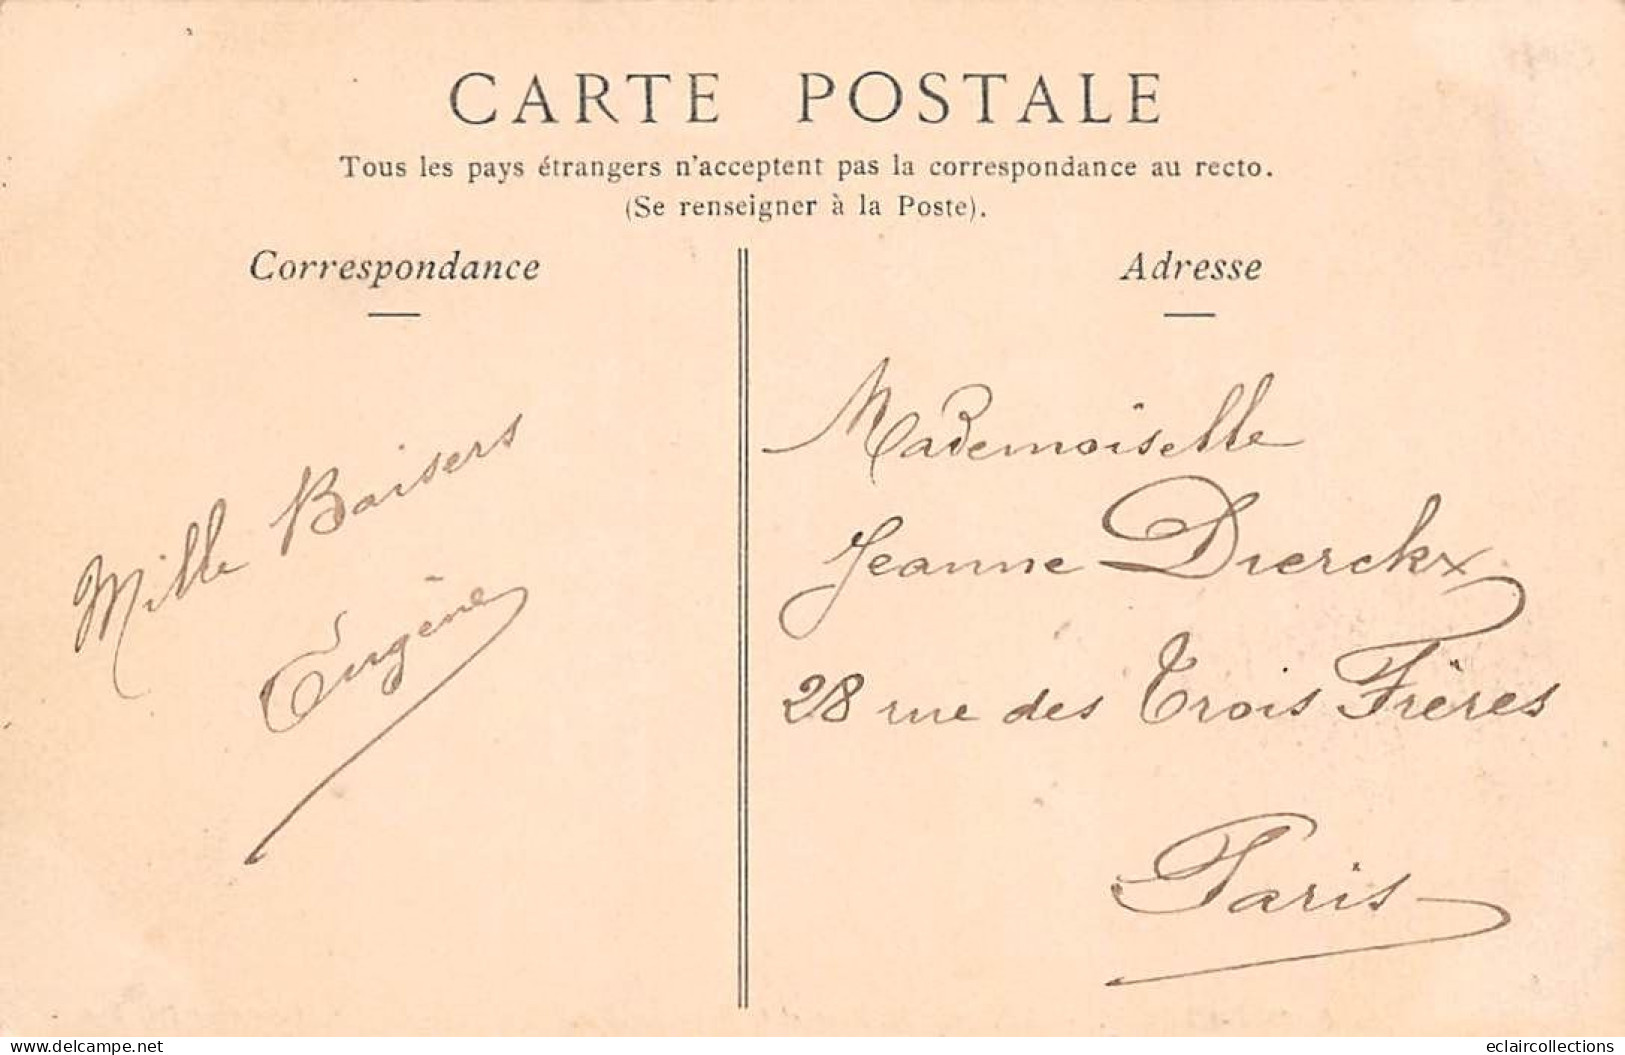 CARTE POSTALE
Tous les pays étrangers n'acceptent pas la correspondance au recto.
(Se renseigner à la Poste).
Correspondance
Mille Baisers
Eugène
Adresse
Mademoiselle
Jeanne Dierckx
28 rue des Trois Frères
Paris
www.delcampe.net
eclaircollections